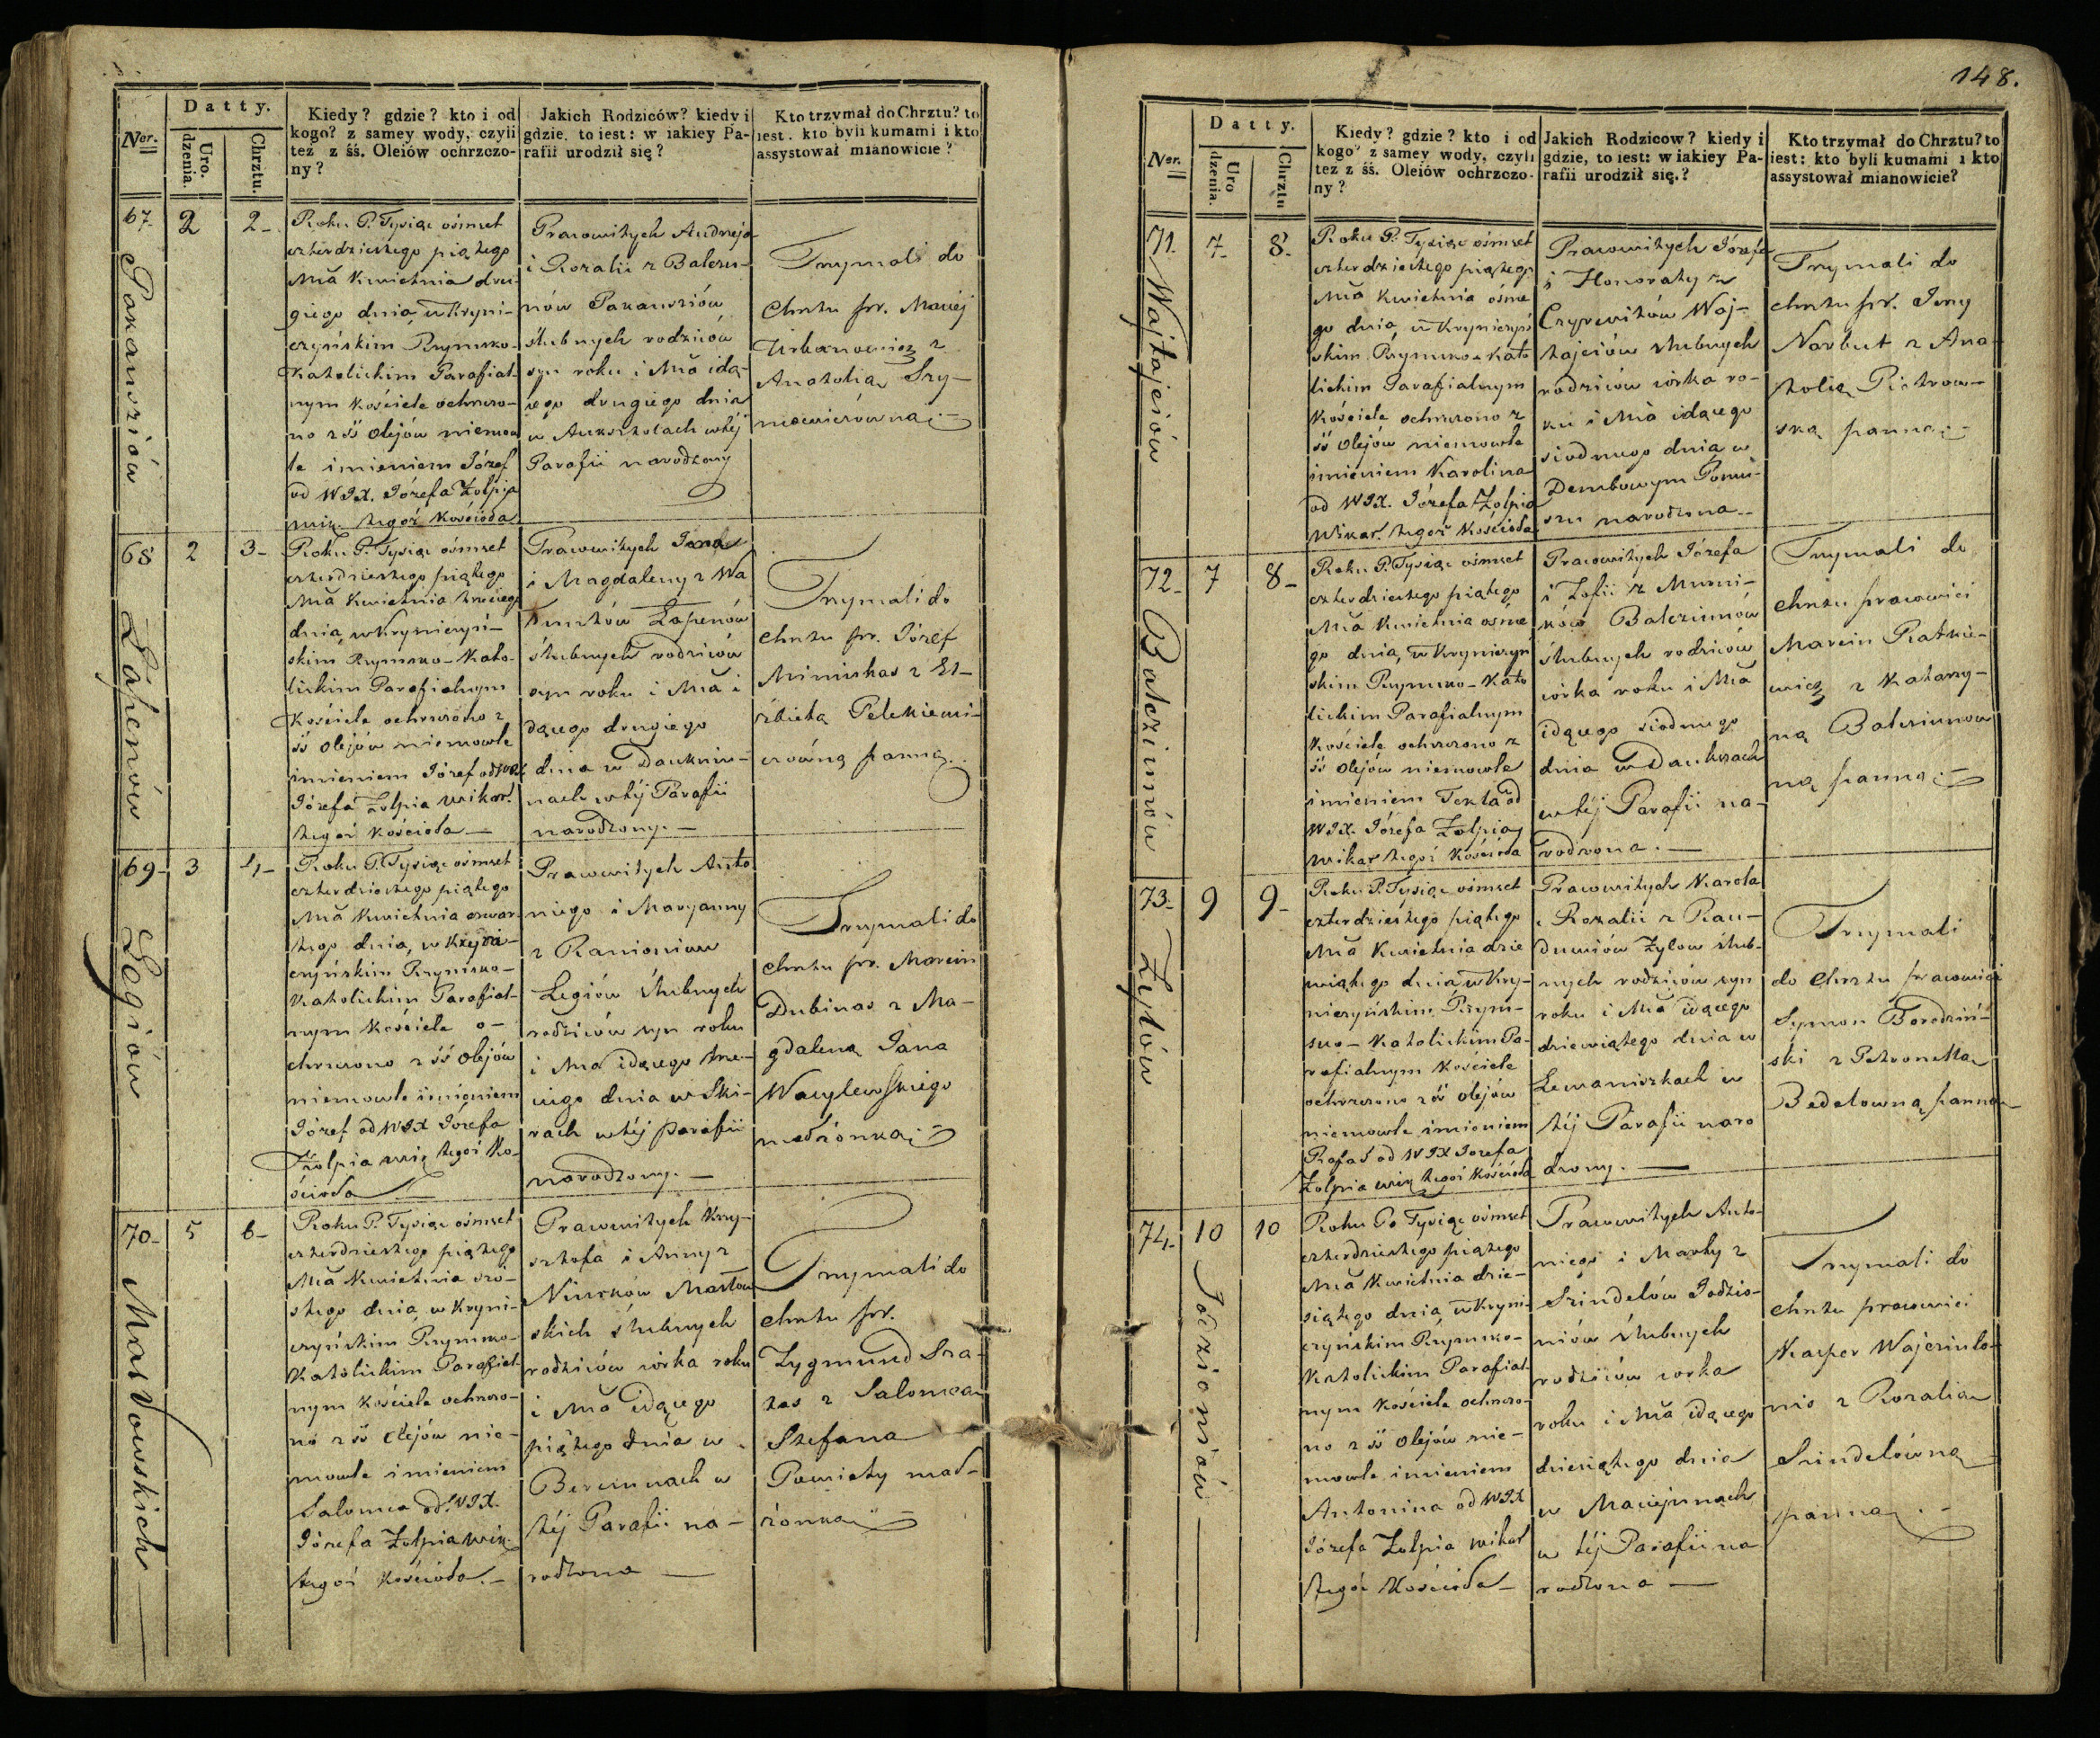 Ner.
Datty.
Uro.
dzenia.
Chrztu.
Kiedy? gdzie? kto i od
kogo? z samey wody, czyli
też z śś. Oleiów ochrzczo-
ny?
Jakich Rodziców? kiedy i
gdzie, to iest: w iakiey Pa-
rafii urodził się?
Kto trzymał do Chrztu? to
iest. kto byli kumami i kto
assystował mianowicie?
67
2
2
Roku P. Tysiąc ośmset
czterdziestego piątego
Mca Kwietnia dru-
giego dnia, w Kryni-
czyńskim Rzymsko-
Katolickim Parafial-
nym Kościele ochrzczo-
no z śś Olejów niemow
le imieniem Józef
od WJX. Józefa Żołpia
wik. tegoż Kościoła
Pracowitych Andrzeja
i Rozalii z Balczu-
nów
ślubnych rodziców
syn roku i Mca idą-
cego drugiego dnia
w Aukszkołach w tej
Parafii narodzony
Trzymali do
Chrztu pr. Maciej
Urbanowicz z
Anatolią Szy-
68
Łapenów
2
3
Roku P. Tysiąc ośmset
czterdziestego piątego
Mca Kwietnia trzeciego
dnia, w Kryniczyń-
skim Rzymsko-Kato-
lickim Parafialnym
Kościele ochrzczono z
śś Olejów niemowle
imieniem Józef od WJX
Józefa Żołpia wikar.
tegoż Kościoła
Pracowitych
i Magdaleny z Wa
Łapenów
ślubnych rodziców
syn roku i Mca i
dącego drugiego
dnia w Daukniu-
nach w tej Parafii
narodzony.
Trzymali do
chrztu pr. Józef
Miniukas z El-
żbietą Petkiewi-
czówną panną.
69
Legiów
3
4
Roku P. Tysiąc ośmset
czterdziestego piątego
Mca Kwietnia czwar-
tego dnia, w Kryni-
czyńskim Rzymsko-
Katolickim Parafial-
nym Kościele o-
chrzczono z śś Olejów
niemowle imieniem
Józef od WJX Józefa
Żołpia wik tegoż Ko-
ścioła
Pracowitych Anto
niego i Maryanny
z
Legiów ślubnych
rodziców syn roku
i Mca idącego trze-
ciego dnia w Ski-
rach w tej parafii
narodzony.
Trzymali do
chrztu pr. Marcin
Dubinas z Ma-
gdaleną Jana
Wasylewskiego
małżonką
70
Masłowskich
5
6
Roku P. Tysiąc ośmset
czterdziestego piątego
Mca Kwietnia szó-
stego dnia, w Kryni-
czyńskim Rzymsko-
Katolickim Parafial
nym Kościele ochrzczo-
no z śś Olejów nie-
mowle imieniem
Salomea od WJX.
Józefa Żołpia wik.
tegoż Kościoła.
Pracowitych Krzy-
sztofa i Anny z
Masłow
skich ślubnych
rodziców córka roku
i Mca idącego
piątego dnia w
w
tej Parafii na-
rodzona
Trzymali do
chrztu pr.
Zygmund Sza-
tas z Salomeą
Stefana
mał-
żonką
148.
Ner.
Datty.
Uro
dzenia.
Chrztu
Kiedy? gdzie? kto i od
kogo? z samey wody, czyli
też z śś. Oleiów ochrzczo-
ny?
Jakich Rodzicow? kiedy i
gdzie, to iest: w iakiey Pa-
rafii urodził się.?
Kto trzymał do Chrztu? to
iest: kto byli kumami i kto
assystował mianowicie?
71
Wajtajciów
7
8
Roku P. Tysiąc ośmset
czterdziestego piątego
Mca Kwietnia ósme
go dnia, w Kryniczyń
skim Rzymsko-Kato
lickim Parafialnym
Kościele ochrzczono z
śś Olejów niemowle
imieniem Karolina
od WJX. Józefa Żołpia
wikar. tegoż Kościoła
Pracowitych Józefa
i Honoraty z
Waj-
tajciów ślubnych
rodziców córka ro-
ku i Mca idącego
siodmego dnia w
Dembowym
narodzona
Trzymali do
chrztu pr. Jerzy
Narbut z Ana-
tolią Piotrow-
ską panną
72
Balcziunów
7
8
Roku P. Tysiąc ośmset
czterdziestego piątego
Mca Kwietnia ósme
go dnia, w Kryniczyń
skim Rzymsko-Kato
lickim Parafialnym
Kościele ochrzczono z
śś Olejów niemowle
imieniem Tekla od
WJX. Józefa Żołpia
wikar tegoż Kościoła
Pracowitych Józefa
i Zofii z
Balcziunów
ślubnych rodziców
córka roku i Mca
idącego siodmego
dnia w
w tej Parafii na-
rodzona.
Trzymali do
chrztu pracowici
Marcin Ratkie-
wicz z Katarzy-
ną Balcziunow
ną panną
73
Zylów
9
9
Roku P. Tysiąc ośmset
czterdziestego piątego
Mca Kwietnia dzie
wiątego dnia w Kry-
niczyńskim Rzym-
sko-Katolickim Pa-
rafialnym Kościele
ochrzczono z śś olejów
niemowle imieniem
Rafał od WJX Józefa
Żołpia wik tegoż Kościoła
Pracowitych Karola
i Rozalii z Rau-
duwiów Zylow ślub-
nych rodziców syn
roku i Mca idącego
dziewiątego dnia w
Lemaniszkach w
tej Parafii naro
dzony.
Trzymali
do Chrztu pracowici
Symon Borodziń-
ski z Petronellą
Bedelowną panną
74
Jodzioniów
10
10
Roku Po Tysiąc ośmset
czterdziestego piątego
Mca Kwietnia dzie-
siątego dnia, w Kryni-
czyńskim Rzymsko-
Katolickim Parafial-
nym Kościele ochrzczo-
no z śś Olejów nie-
mowle imieniem
Antonina od WJX
Józefa Żołpia wikar
tegoż Kościoła
Pracowitych Anto-
niego i Marty z
Szindelów Jodzio-
niów ślubnych
rodziców córka
roku i Mca idącego
dziesiątego dnia
w Maciejunach
w tej Parafii na
rodzona
Trzymali do
chrztu pracowici
Kasper
z Rozalią
Szindelówną
panną